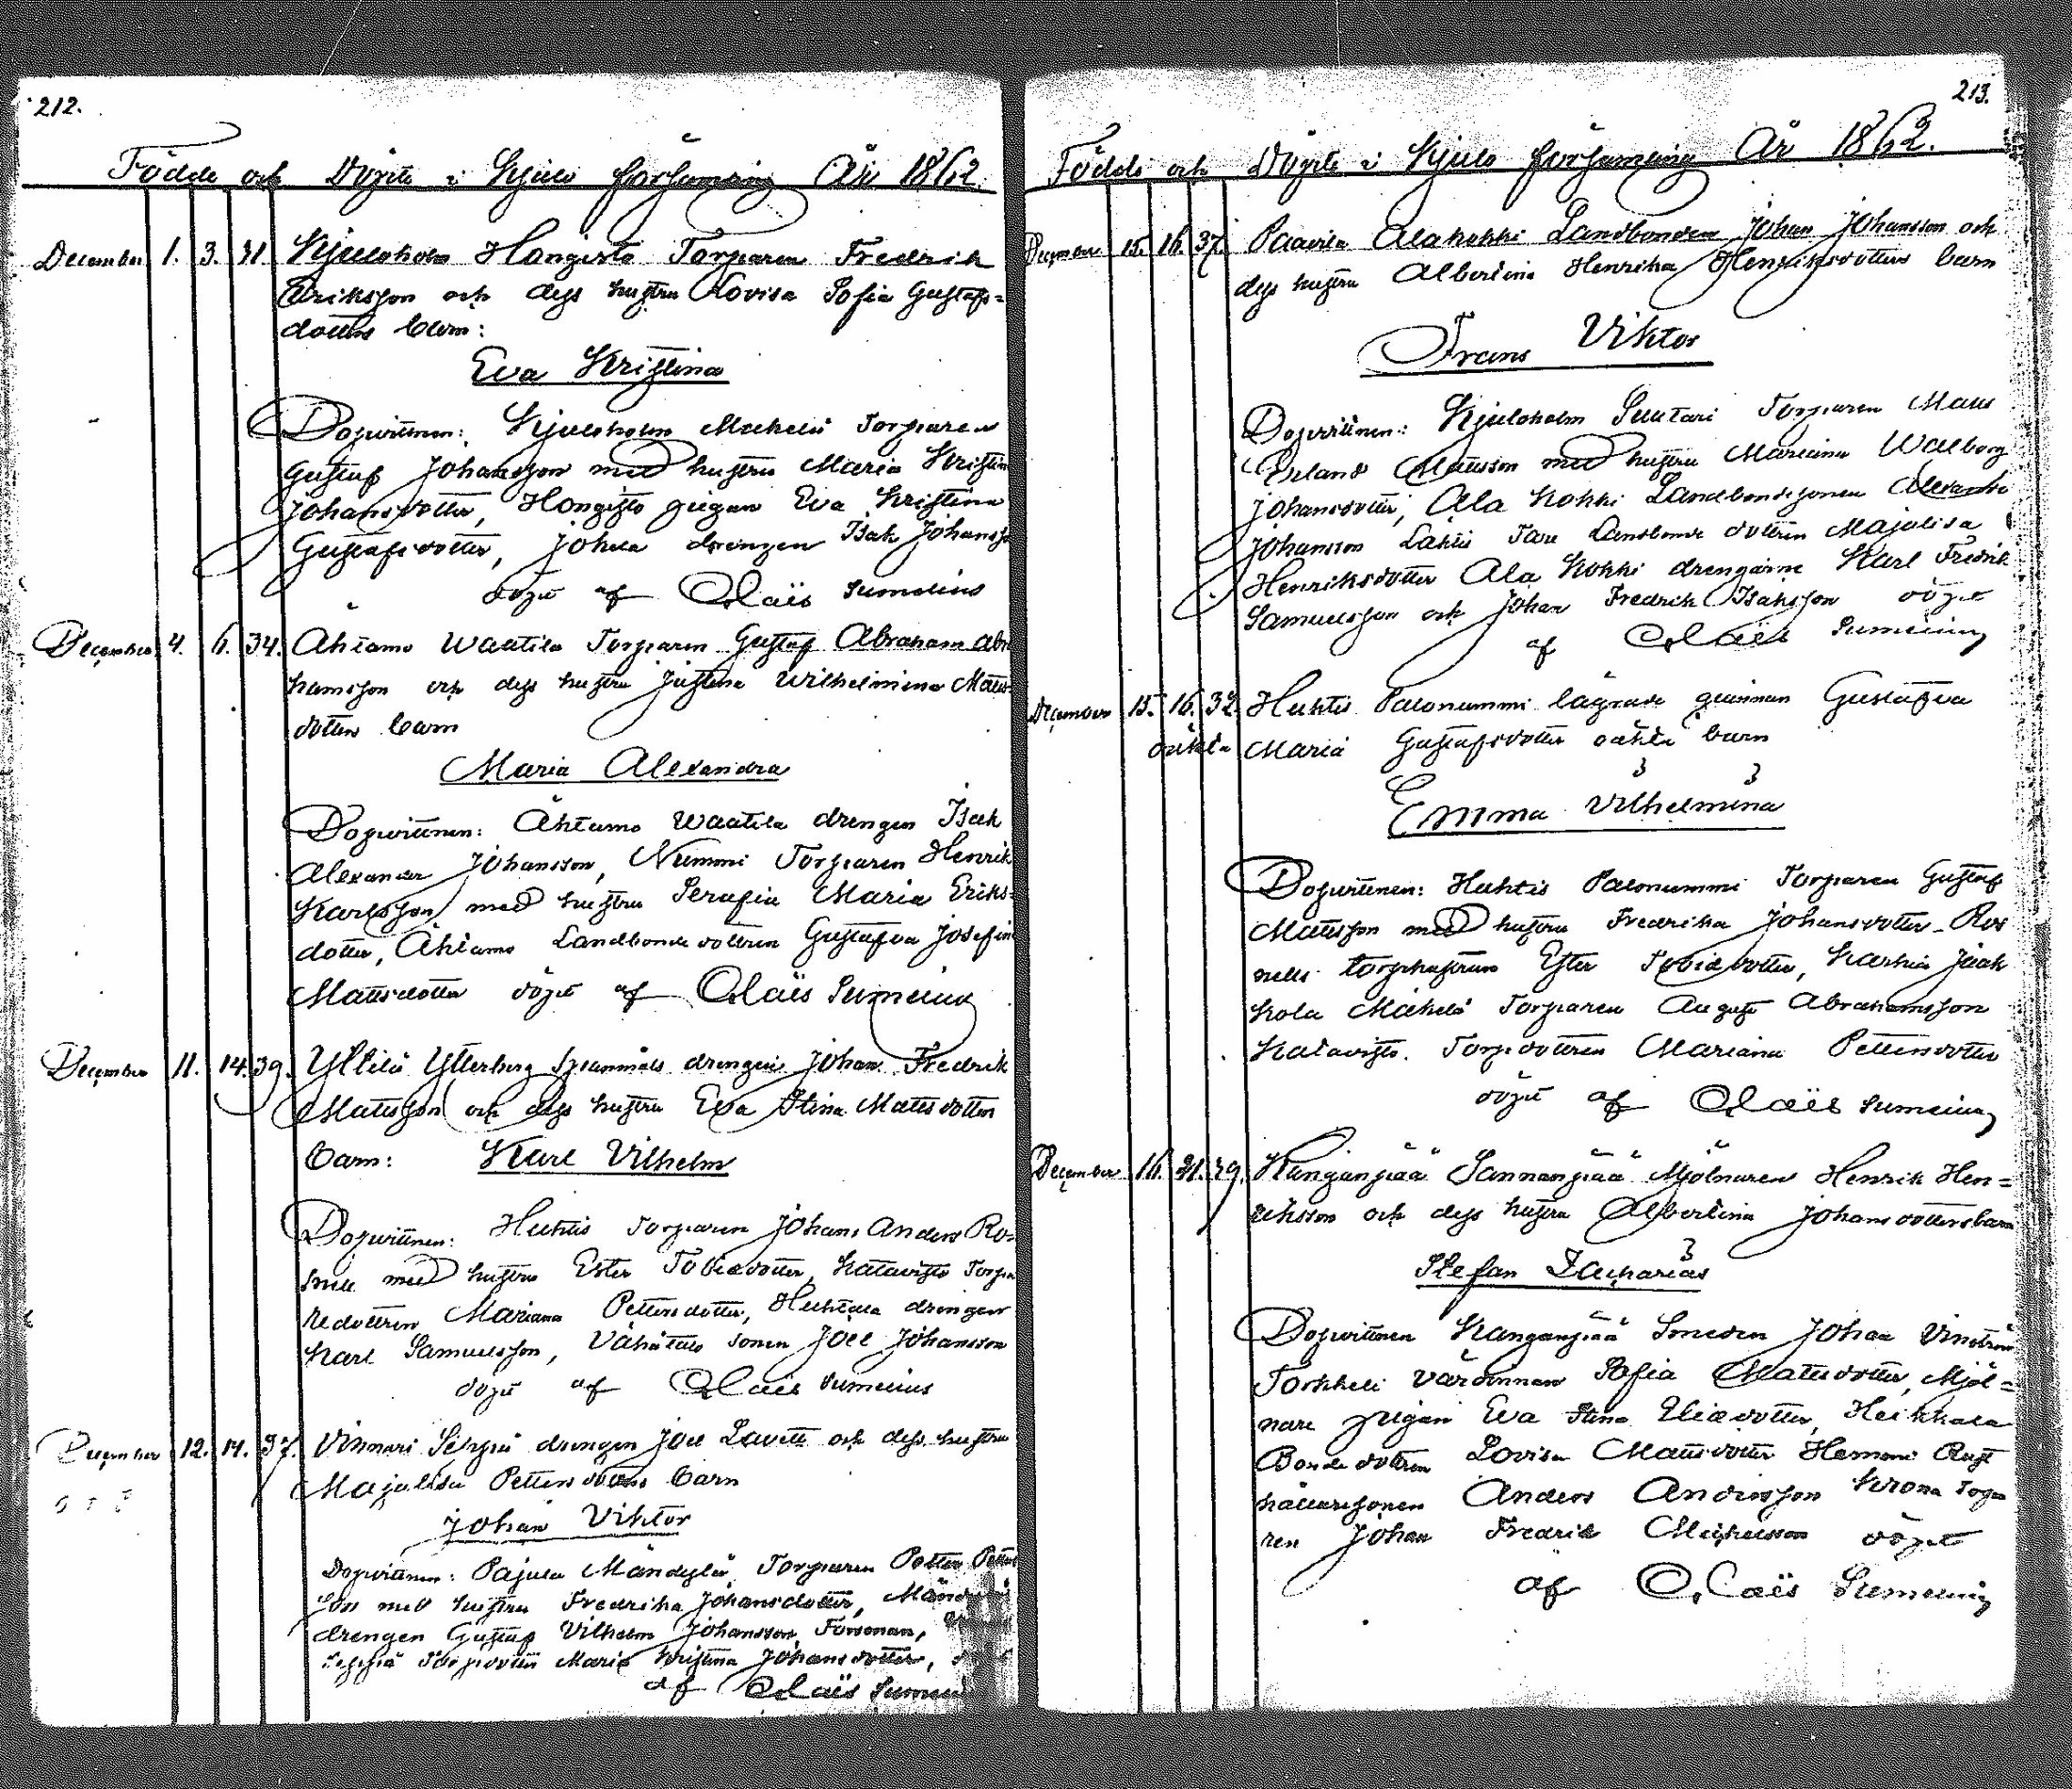 212.
Födde och Döpte i Kjulo församling År 1862
December 1. 3. 31. Kjuloholm Hongisto Torparen Fredrik
Eriksson och dess hustru Lovisa Sofia Gustafs=
dotters barn:
Eva Kristina
Dopvittnen: Kjuloholm Mäkelä Torparen
Gustaf Johansson med hustru Maria Kristin
Johansdotter, Hongisto pigan Eva Kristina
Gustafsdotter, drengen Isak Johanss
döpt af Claës Sumelius
December 4. 6. 34. Ahtamo Waatila Torparen Gustaf Abraham Abr
hamsson och dess hustru Justina Wilhelmina Matts
dotters barn
Maria Alexandra
Dopvittnen: Ahtamo Waatila drengen Isak
Alexander Johansson, Nummi Torparen Henrik
Karlsson med hustru Serafia Maria Eriks=
dotter, Ahtamo Landbonde dottren Gustafva Josefin
Mattsdotter döpt af Claës Sumelius
December 11. 14. 39. Ytterberg drengen Johan Fredrik
Mattsson och dess hustru Eva Stina Mattsdotters
barn: Karl Vilhelm
Dopvittnen: Huhtis Torparen Johan Anders Ro=
med hustru Ester Tobiædotter, Katavisto Torpa
redottren Mariana Pettersdotter, drengen
Karl Samuelsson, Vähätalo sonen Joel Johansson
döpt af Claës Sumelius
December 12. 14. 37. Vinnari Seppä drengen Joel Lavett och dess hustru
Majalisa Pettersdotters barn
Johan Viktor
Dopvittnen: Pajula Torparen Petter Petters
son med hustru Fredrika Johansdotter,
drengen Gustaf Vilhelm Johansson,
Maria Kristina Johansdotter,
af Claës Sumelius
213.
Födde och Döpte i Kjulo församling År 1862.
December 15. 16. 37. Paavila Alakokki Landbonden Johan Johansson och
dess hustru Albertina Henrika Henriksdotters barn
Frans Viktor
Dopvittnen: Kjuloholm Suutari Torparen Matts
Erland Mattsson med hustru Mariana Walborg
Johansdotter, Ala Kokki Landbondesonen Alexander
Johansson Lahti Landbonde dottren Majalisa
Henriksdotter Ala Kokki drengarne Karl Fredrik
Samuelsson och Johan Fredrik Isaksson döpt
af Claës Sumelius
December 15. 16. 32. Huhtis Palonummi lägrade qvinnan Gustafva
oäkta Maria Gustafsdotter oäkta barn
Emma Vilhelmina
Dopvittnen: Huhtis Palonummi Torparen Gustaf
Mattsson med hustru Fredrika Johansdotter Ros
nells torphustrun Ester Tobiædotter,
kola Mäkelä Torparen August Abrahamsson
Katavisto Torpdottren Mariana Pettersdotter
döpt af Claës Sumelius
December 16. 21. 39. Kanganpää Sannanpää Mjölnaren Henrik Hen=
riksson och dess hustru Albertina Johansdotters barn
Stefan Zacharias
Dopvittnen Kanganpää Smeden Johan
Torkkeli värdinnan Sofia Mattsdotter, Mjöl=
nare pigan Eva Stina Eliædotter, Heikkala
Bonde dottren Lovisa Mattsdotter Rust
hållaresonen Anders Andersson Krono Torpa
ren Johan Fredrik Michelsson döpt
af Claës Sumelius